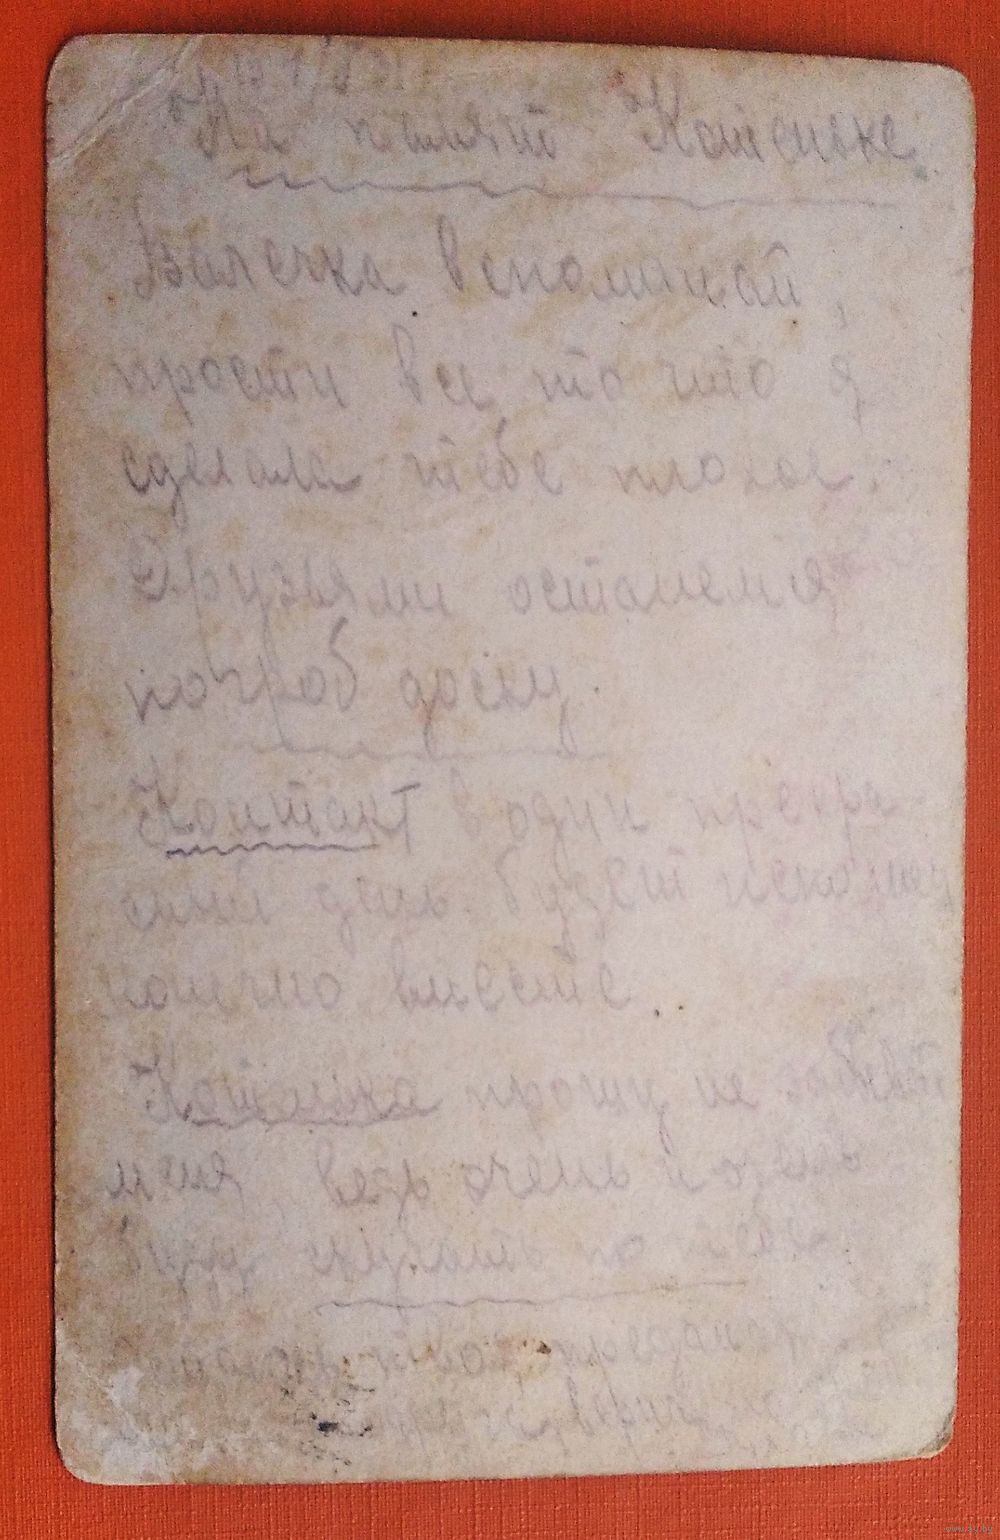 На памят Катеньке.
Валечка вспоминай,
прости все то что я
сделала тебе плохое.
Друзьями останемся
по гроб доску.
Контакт в один прекра
сный день будет
конечно вместе.
Катенька прошу не забывай
меня, ведь очень и очень
буду скучать по тебе